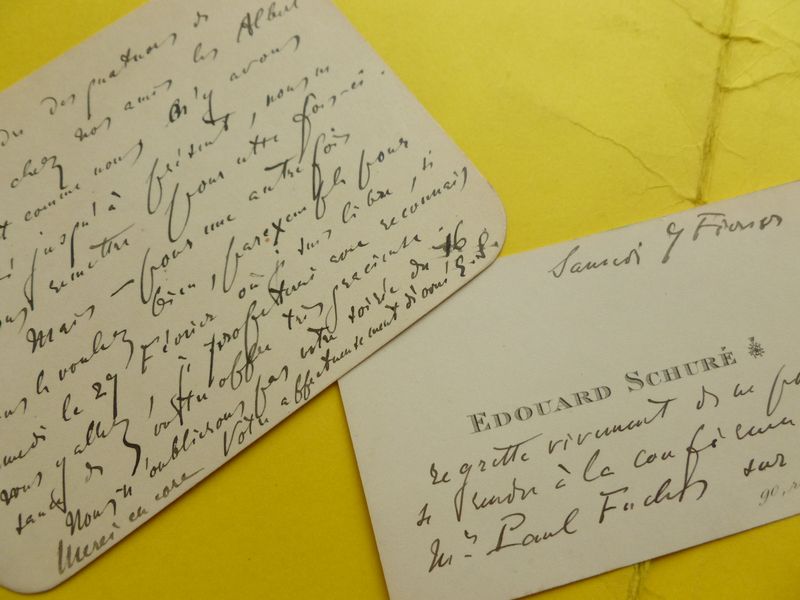 des quatuors de
chez nos amis les Albert
comme nous n'y avons
jusqu'à présent, nous
remettre pour une autre fois-ci.
Mais – pour une autre fois
le voulez bien, par exemple pour
le 29 Février où je suis libre, si
vous y allez, je profiterai avec reconnais
sance de votre offre très gracieuse.
Nous n'oublierons pas votre soirée du 16
Merci encore Votre affectueusement dévoué E. S.
Samedi 7 Février
EDOUARD SCHURÉ
regrette vivement de ne pa
se rendre à la conféren
Mr Paul Fuchs sur
90, r